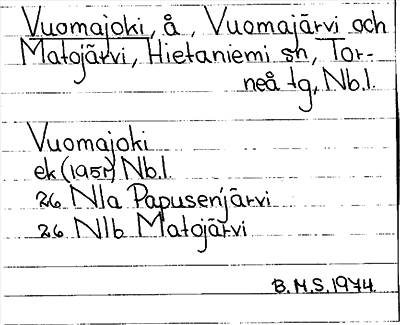 Vuomajoki, å, Vuomajärvi och
Matojärvi, Hietaniemi sn, Tor-
neå tg, Nb.l.
Vuomajoki
ek (1951) Nb.l.
26 N1a Papusenjärvi
26 N1b Matojärvi
B.M.S. 1974